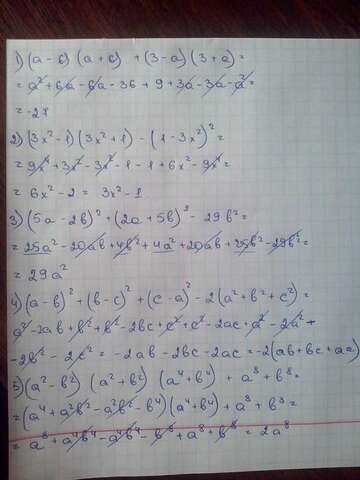 1) (a - 6) (a + 6) + (3 - a) (3 + a) =
= a² + 6a - 6a - 36 + 9 + 3a - 3a - a² =
= -27
2) (3x² - 1) (3x² + 1) - (1 - 3x²)² =
= 9x⁴ + 3x² - 3x² - 1 - 1 + 6x² - 9x⁴ =
= 6x² - 2 = 3x² - 1
3) (5a - 2b)² + (2a + 5b)² - 29b² =
= 25a² - 20ab + 4b² + 4a² + 20ab + 25b² - 29b² =
= 29a²
4) (a - b)² + (b - c)² + (c - a)² - 2(a² + b² + c²) =
a² - 2ab + b² + b² - 2bc + c² + c² - 2ac + a² - 2a² +
- 2b² - 2c² = -2ab - 2bc - 2ac = -2(ab + bc + ac)
5) (a² - b²) (a² + b²) (a⁴ + b⁴) + a⁸ + b⁸ =
= (a⁴ + a²b² - a²b² - b⁴)(a⁴ + b⁴) + a⁸ + b⁸ =
= a⁸ + a⁴b⁴ - a⁴b⁴ - b⁸ + a⁸ + b⁸ = 2a⁸